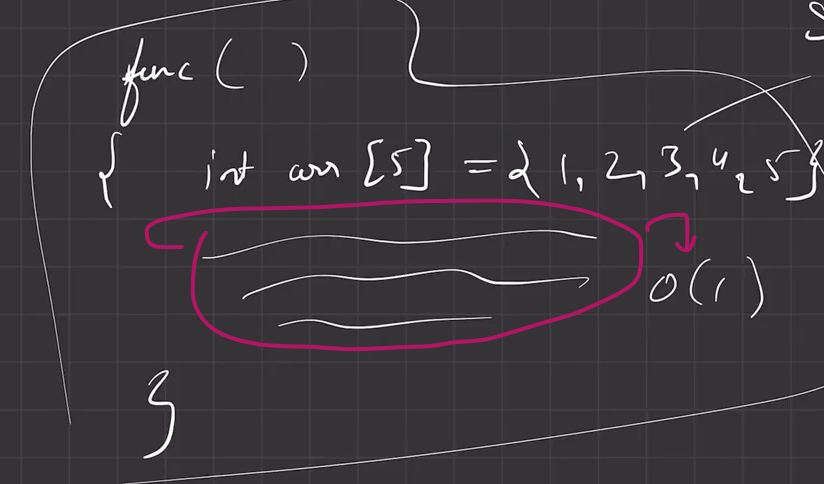 func ( )
{ int arr [5] = { 1, 2, 3, 4, 5 }
O(1)
}